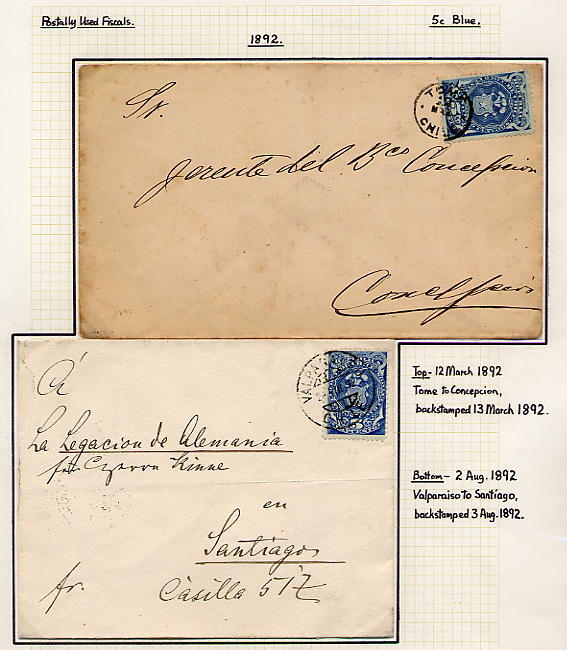 Postally Used Fiscals.
5c Blue.
1892.
Sr.
Jerente del Bco Concepcion
Concepcion
TOME
CHILE
1892
Á
La Legacion de Alemania
für Czarra Kinne
en
Santiago
fr. Casilla 517
VALPARAISO
Top- 12 March 1892
Tome to Concepcion,
backstamped 13 March 1892.
Bottom- 2 Aug. 1892
Valparaiso to Santiago,
backstamped 3 Aug. 1892.